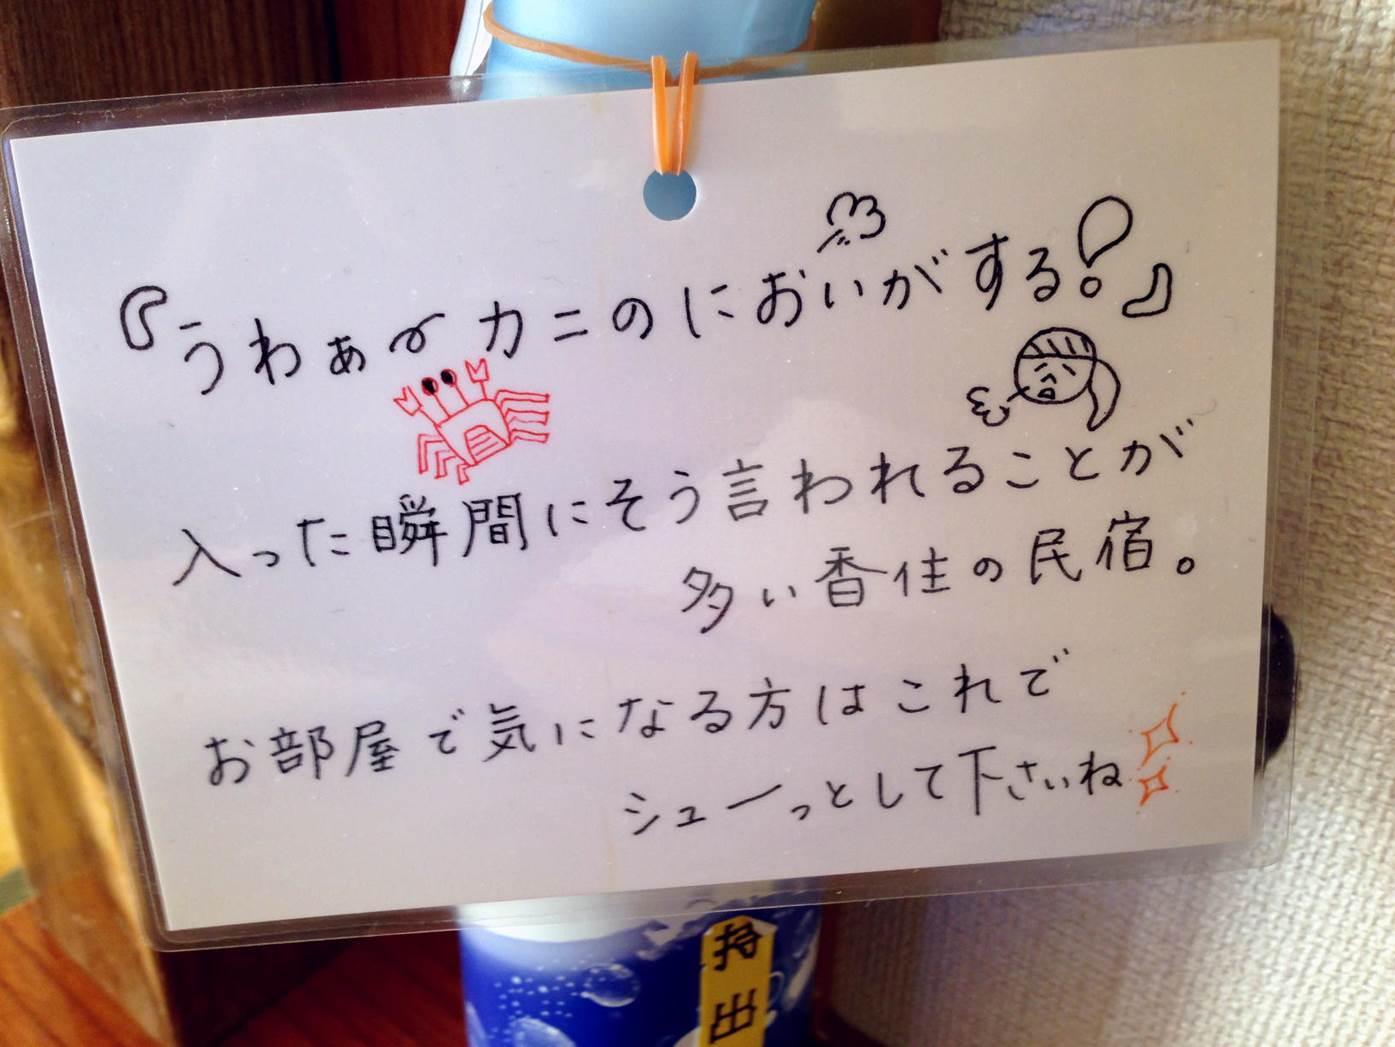 『うわぁ〜カニのにおいがする!』
入った瞬間にそう言われることが
多い香住の民宿。
お部屋で気になる方はこれで
シューっとして下さいね
持出